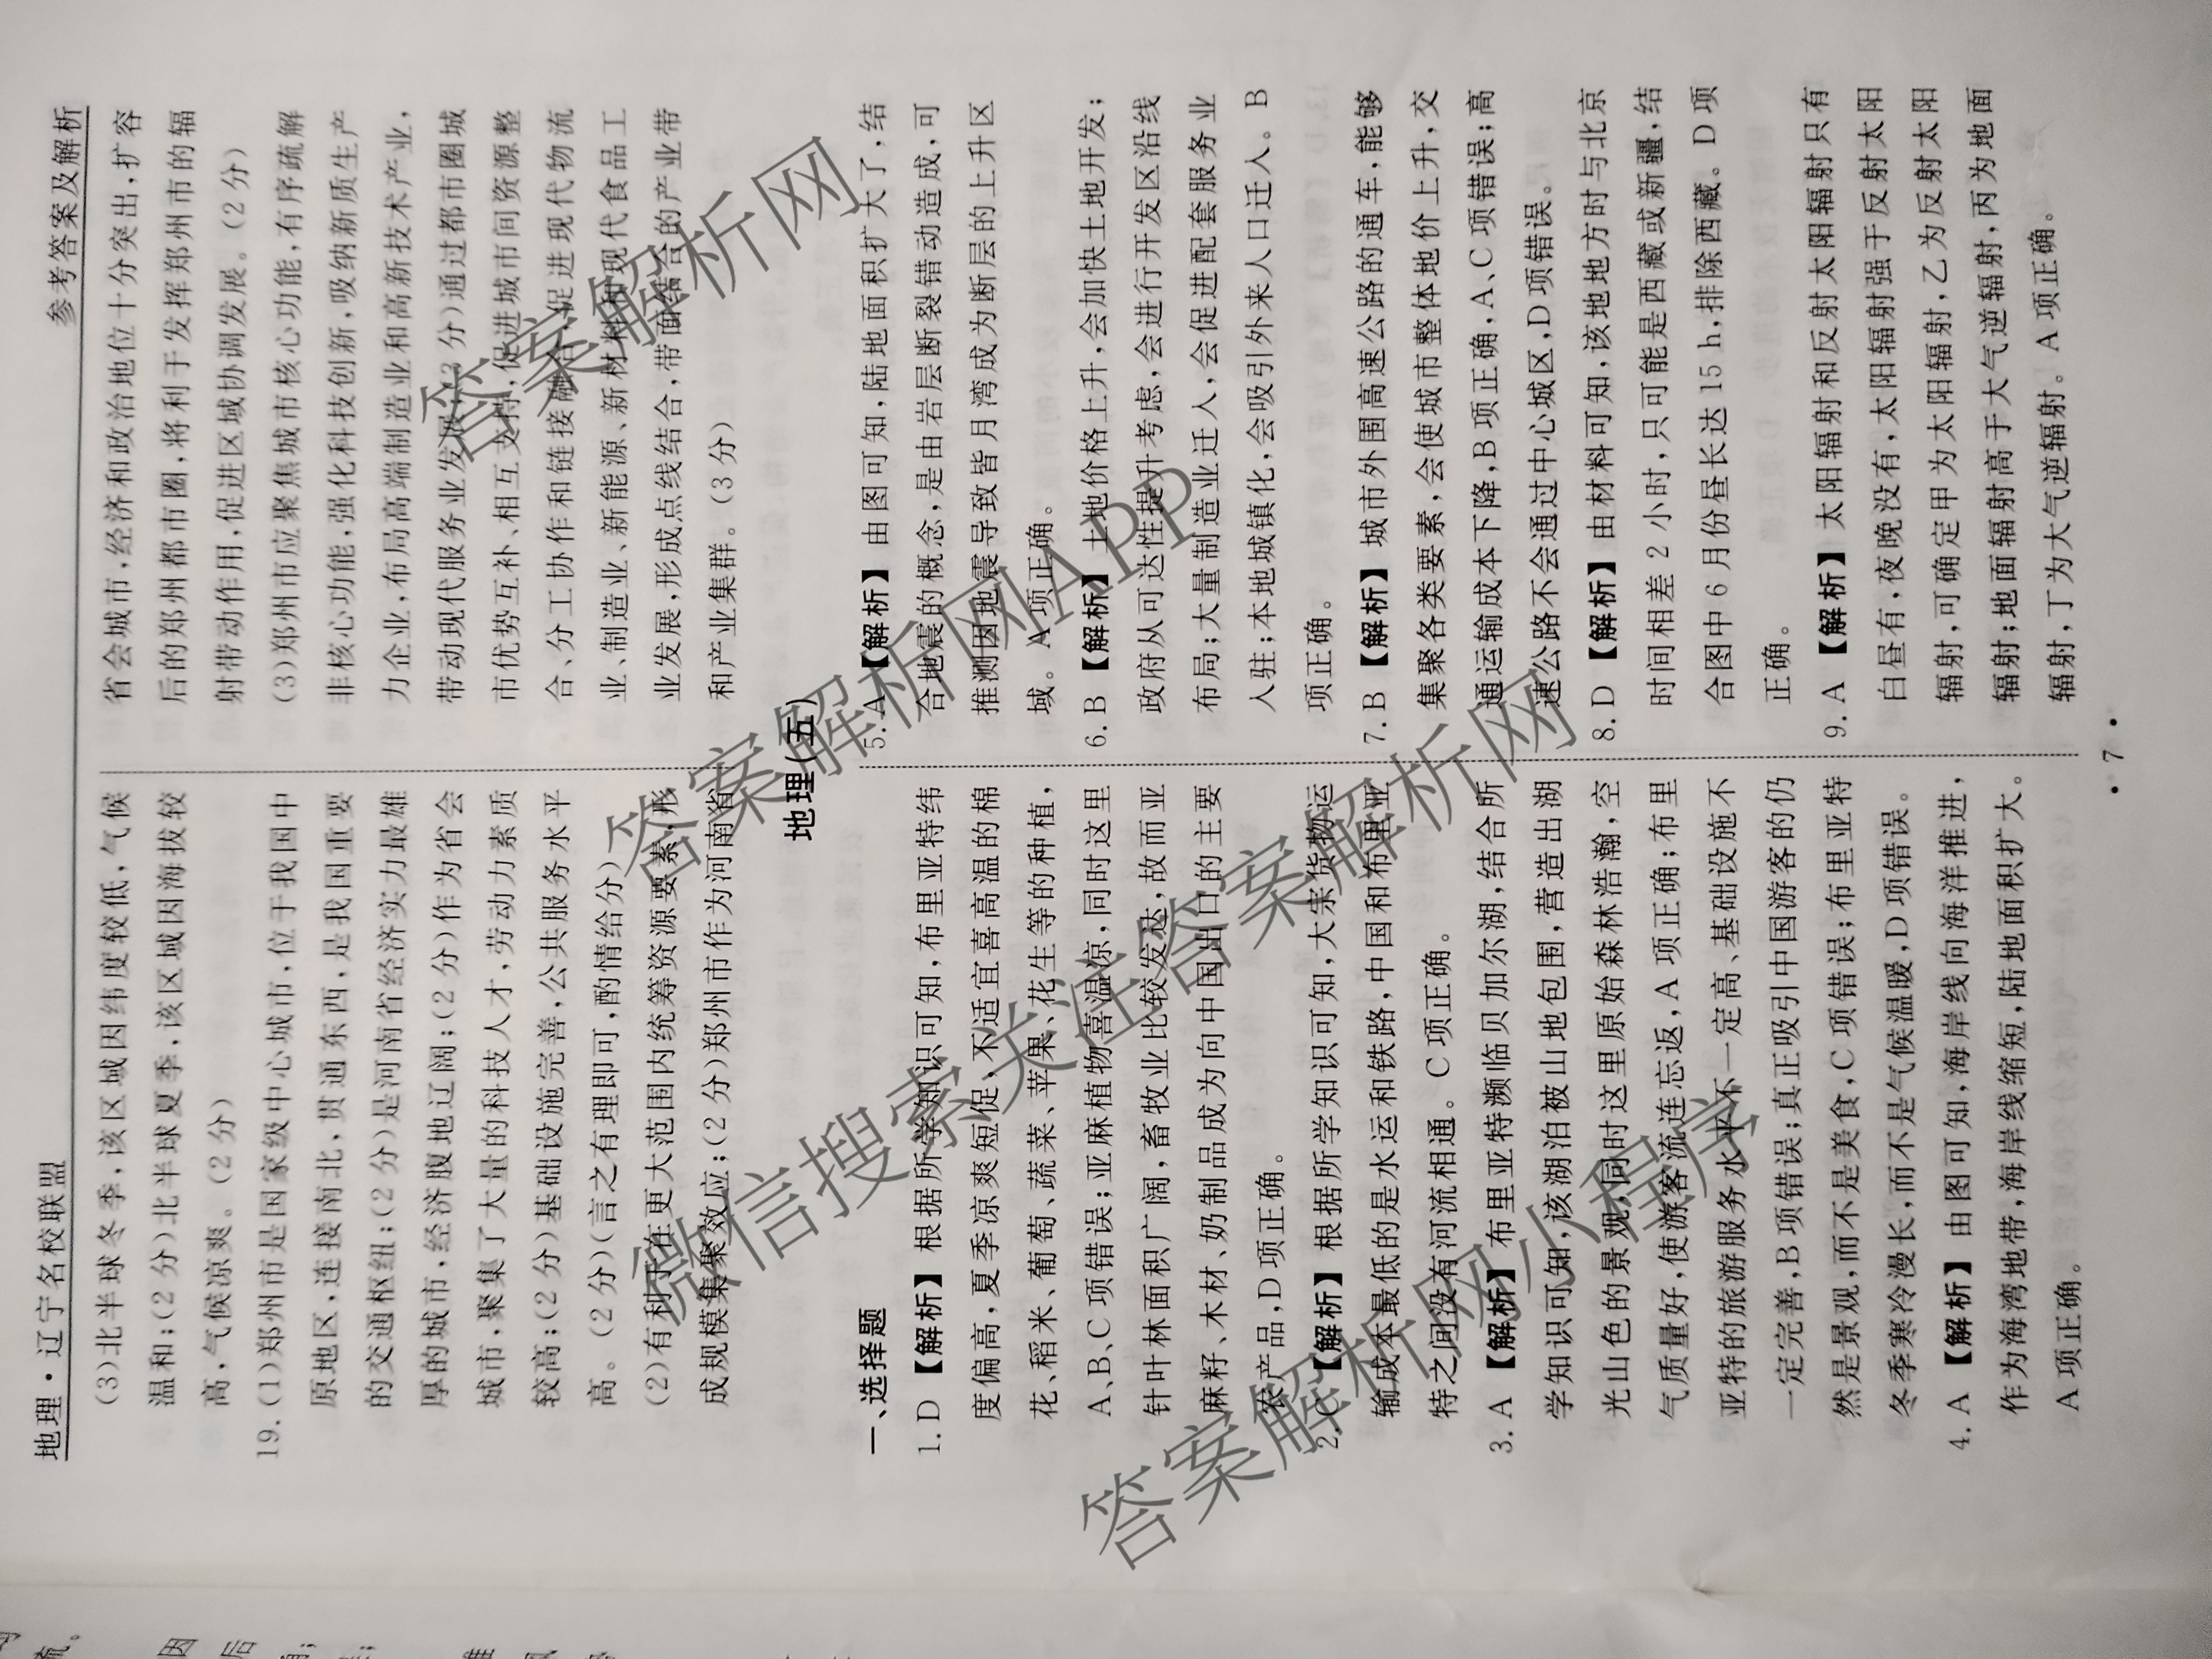 地理·辽宁名校联盟
参考答案及解析
(3)北半球冬季,该区域因纬度较低,气候
温和;(2分)北半球夏季,该区域因海拔较
高,气候凉爽。(2分)
19.(1)郑州市是国家级中心城市,位于我国中
原地区,连接南北,贯通东西,是我国重要
的交通枢纽;(2分)是河南省经济实力最雄
厚的城市,经济腹地辽阔;(2分)作为省会
城市,聚集了大量的科技人才,劳动力素质
较高;(2分)基础设施完善,公共服务水平
高。(2分)(言之有理即可,酌情给分)
(2)有利于在更大范围内统筹资源要素,形
成规模集聚效应;(2分)郑州市作为河南省
省会城市,经济和政治地位十分突出,扩容
后的郑州都市圈,将利于发挥郑州市的辐
射带动作用,促进区域协调发展。(2分)
(3)郑州市应聚焦城市核心功能,有序疏解
非核心功能,强化科技创新,吸纳新质生产
力企业,布局高端制造业和高新技术产业,
带动现代服务业发展;(3分)通过都市圈城
市优势互补、相互支持,促进城市间资源整
合、分工协作和链接融合,促进现代物流
业、制造业、新能源、新材料和现代食品工
业发展,形成点线结合,带面结合的产业带
和产业集群。(3分)
地理(五)
一、选择题
1.D 【解析】根据所学知识可知,布里亚特纬
度偏高,夏季凉爽短促,不适宜喜高温的棉
花、稻米、葡萄、蔬菜、苹果、花生等的种植,
A、B、C项错误;亚麻植物喜温凉,同时这里
针叶林面积广阔,畜牧业比较发达,故而亚
麻籽、木材、奶制品成为向中国出口的主要
农产品,D项正确。
2.C 【解析】根据所学知识可知,大宗货物运
输成本最低的是水运和铁路,中国和布里亚
特之间没有河流相通。C项正确。
3.A 【解析】布里亚特濒临贝加尔湖,结合所
学知识可知,该湖泊被山地包围,营造出湖
光山色的景观,同时这里原始森林浩瀚,空
气质量好,使游客流连忘返,A项正确;布里
亚特的旅游服务水平不一定高、基础设施不
一定完善,B项错误;真正吸引中国游客的仍
然是景观,而不是美食,C项错误;布里亚特
冬季寒冷漫长,而不是气候温暖,D项错误。
4.A 【解析】由图可知,海岸线向海洋推进,
作为海湾地带,海岸线缩短,陆地面积扩大。
A项正确。
5.A 【解析】由图可知,陆地面积扩大了,结
合地震的概念,是由岩层断裂错动造成,可
推测因地震导致皆月湾成为断层的上升区
域。A项正确。
6.B 【解析】土地价格上升,会加快土地开发;
政府从可达性提升考虑,会进行开发区沿线
布局;大量制造业迁入,会促进配套服务业
入驻;本地城镇化,会吸引外来人口迁入。B
项正确。
7.B 【解析】城市外围高速公路的通车,能够
集聚各类要素,会使城市整体地价上升,交
通运输成本下降,B项正确,A、C项错误;高
速公路不会通过中心城区,D项错误。
8.D 【解析】由材料可知,该地地方时与北京
时间相差2小时,只可能是西藏或新疆,结
合图中6月份昼长达15h,排除西藏。D项
正确。
9.A 【解析】太阳辐射和反射太阳辐射只有
白昼有,夜晚没有,太阳辐射强于反射太阳
辐射,可确定甲为太阳辐射,乙为反射太阳
辐射;地面辐射高于大气逆辐射,丙为地面
辐射,丁为大气逆辐射。A项正确。
·7·
答案解析网
答案解析网APP
微信搜索关注答案解析网
答案解析网小程序